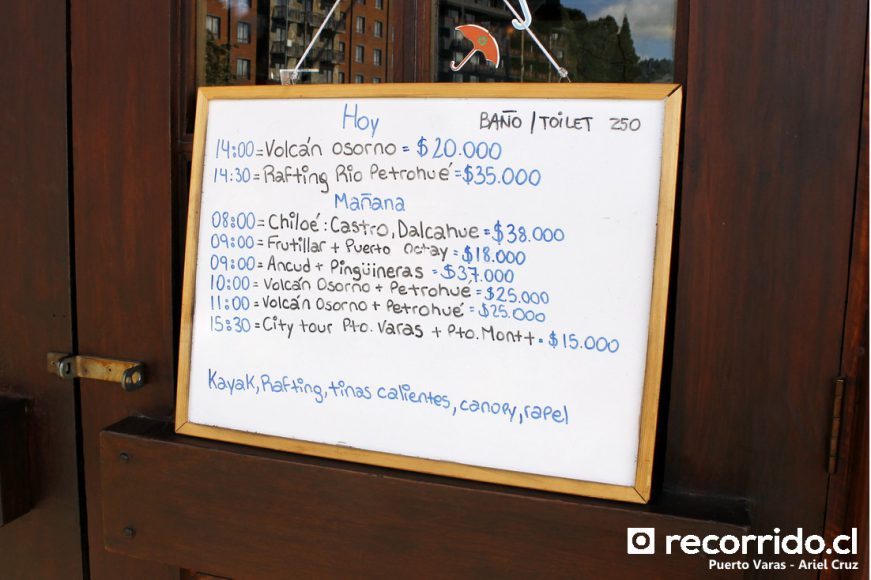 Hoy
BAÑO / TOILET 250
14:00 = Volcán Osorno = $20.000
14:30 = Rafting Rio Petrohué = $35.000
Mañana
08:00 = Chiloé: Castro, Dalcahue = $38.000
09:00 = Frutillar + Puerto Octay = $18.000
09:00 = Ancud + Pingüineras = $37.000
10:00 = Volcán Osorno + Petrohué = $25.000
11:00 = Volcán Osorno + Petrohué = $25.000
15:30 = City tour Pto. Varas + Pto. Montt = $15.000
Kayak, Rafting, tinas calientes, canopy, rapel
recorrido.cl
Puerto Varas - Ariel Cruz